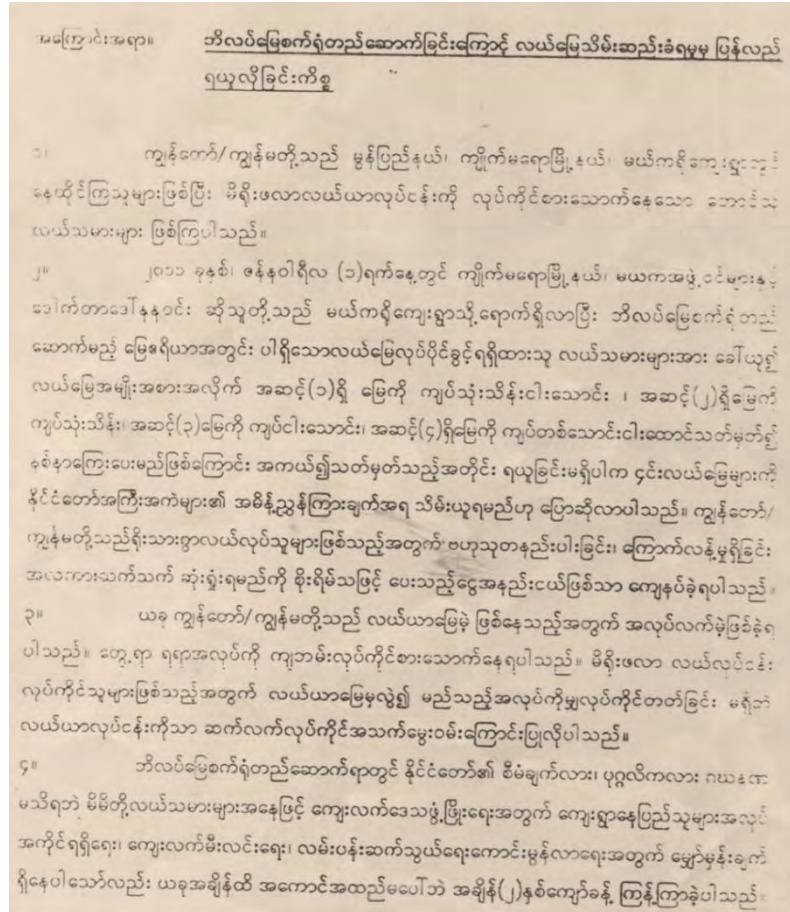 အကြောင်းအရာ။ ဘိလပ်မြေစက်ရုံတည်ဆောက်ခြင်းကြောင့် လယ်မြေသိမ်းဆည်းခံရမှုမှ ပြန်လည်
ရယူလိုခြင်းကိစ္စ
၁။ ကျွန်တော်/ကျွန်မတို့သည် မွန်ပြည်နယ်၊ ကျိုက်မရောမြို့နယ်၊ မယ်ကရိုကျေးရွာတွင်
နေထိုင်ကြသူများဖြစ်ပြီး မိရိုးဖလာလယ်ယာလုပ်ငန်းကို လုပ်ကိုင်စားသောက်နေသော တောင်သူ
လယ်သမားများ ဖြစ်ကြပါသည်။
၂။ ၂၀၁၁ ခုနှစ်၊ ဇန်နဝါရီလ (၁)ရက်နေ့တွင် ကျိုက်မရောမြို့နယ်၊ မယကအဖွဲ့ဝင်များနှင့်
ဒေါက်တာဒေါ်နနဝင်း ဆိုသူတို့သည် မယ်ကရိုကျေးရွာသို့ရောက်ရှိလာပြီး ဘိလပ်မြေစက်ရုံတည်
ဆောက်မည့် မြေဧရိယာအတွင်း ပါရှိသောလယ်မြေလုပ်ပိုင်ခွင့်ရရှိထားသူ လယ်သမားများအား ခေါ်ယူ၍
လယ်မြေအမျိုးအစားအလိုက် အဆင့်(၁)ရှိ မြေကို ကျပ်သုံးသိန်းငါးသောင်း ၊ အဆင့်(၂)ရှိမြေကို
ကျပ်သုံးသိန်း၊ အဆင့်(၃)မြေကို ကျပ်ငါးသောင်း၊ အဆင့်(၄)ရှိမြေကို ကျပ်တစ်သောင်းငါးထောင်သတ်မှတ်၍
နစ်နာကြေးပေးမည်ဖြစ်ကြောင်း အကယ်၍သတ်မှတ်သည့်အတိုင်း ရယူခြင်းမရှိပါက ၄င်းလယ်မြေများကို
နိုင်ငံတော်အကြီးအကဲများ၏ အမိန့်ညွှန်ကြားချက်အရ သိမ်းယူရမည်ဟု ပြောဆိုလာပါသည်။ ကျွန်တော်/
ကျွန်မတို့သည်ရိုးသားစွာလယ်လုပ်သူများဖြစ်သည့်အတွက် ဗဟုသုတနည်းပါးခြင်း၊ ကြောက်လန့်မှုရှိခြင်း
အလကားသက်သက် ဆုံးရှုံးရမည်ကို စိုးရိမ်သဖြင့် ပေးသည့်ငွေအနည်းငယ်ဖြစ်သာ ကျေနပ်ခဲ့ရပါသည်။
၃။ ယခု ကျွန်တော်/ကျွန်မတို့သည် လယ်ယာမြေမဲ့ ဖြစ်နေသည့်အတွက် အလုပ်လက်မဲ့ဖြစ်ခဲ့ရ
ပါသည်။ တွေ့ရာ ရရာအလုပ်ကို ကျဘမ်းလုပ်ကိုင်စားသောက်နေရပါသည်။ မိရိုးဖလာ လယ်လုပ်ငန်း
လုပ်ကိုင်သူများဖြစ်သည့်အတွက် လယ်ယာမြေမှလွဲ၍ မည်သည့်အလုပ်ကိုမျှလုပ်ကိုင်တတ်ခြင်း မရှိဘဲ
လယ်ယာလုပ်ငန်းကိုသာ ဆက်လက်လုပ်ကိုင်အသက်မွေးဝမ်းကြောင်းပြုလိုပါသည်။
၄။ ဘိလပ်မြေစက်ရုံတည်ဆောက်ရာတွင် နိုင်ငံတော်၏ စီမံချက်လား၊ ပုဂ္ဂလိကလား ဂဃနဏ
မသိရဘဲ မိမိတို့လယ်သမားများအနေဖြင့် ကျေးလက်ဒေသဖွံ့ဖြိုးရေးအတွက် ကျေးရွာနေပြည်သူများအလုပ်
အကိုင်ရရှိရေး၊ ကျေးလက်မီးလင်းရေး၊ လမ်းပန်းဆက်သွယ်ရေးကောင်းမွန်လာရေးအတွက် မျှော်မှန်းချက်
ရှိနေပါသော်လည်း ယခုအချိန်ထိ အကောင်အထည်မပေါ်ဘဲ အချိန်(၂)နှစ်ကျော်ခန့် ကြန့်ကြာခဲ့ပါသည်။